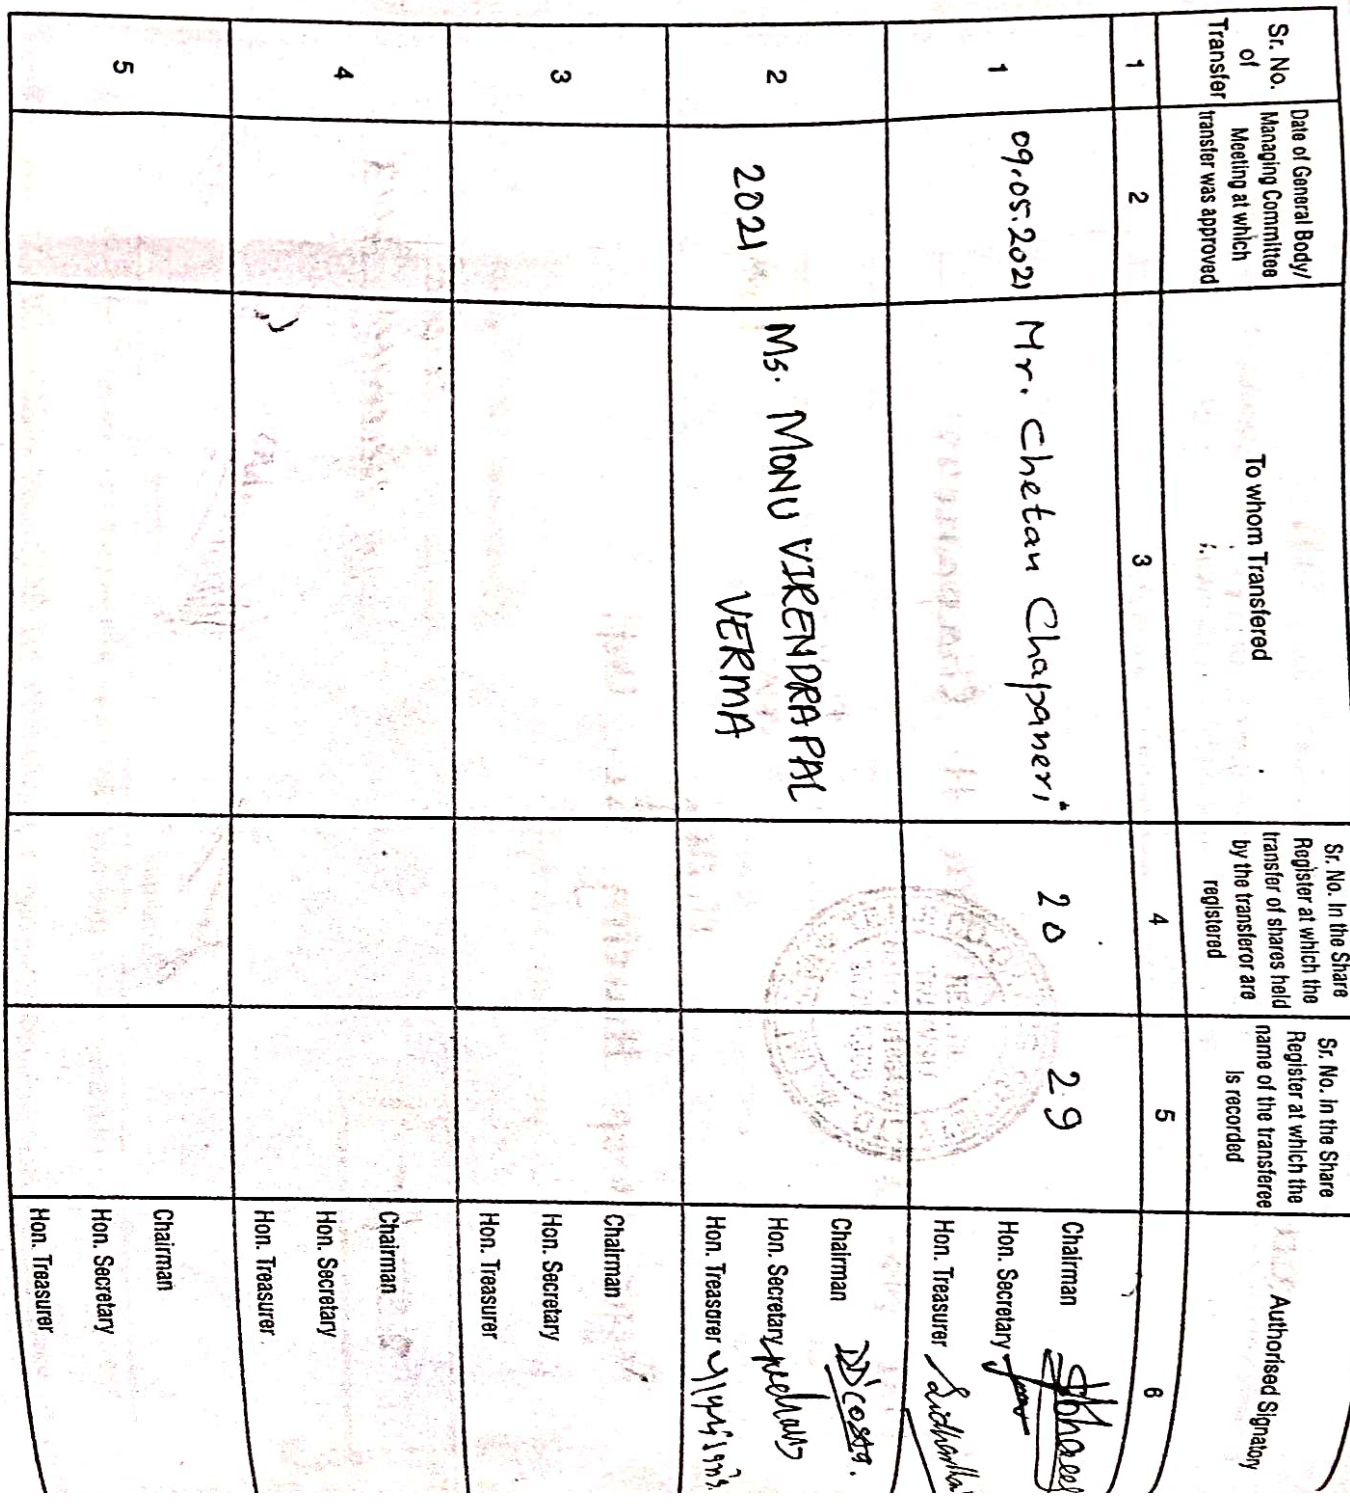 Sr. No.
of
Transfer
Date of General Body/
Managing Committee
Meeting at which
transfer was approved
To whom Transfered
Sr. No. In the Share
Register at which the
transfer of shares held
by the transferor are
registered
Sr. No. in the Share
Register at which the
name of the transferee
is recorded
Authorised Signatory
1
2
3
4
5
6
1
09.05.2021
Mr. Chetan Chapaneri
20
29
Chairman
Hon. Secretary
Hon. Treasurer
2
2021
Ms. MONU VIRENDRAPAL
VERMA
Chairman DD'costa.
Hon. Secretary
Hon. Treasurer
3
Chairman
Hon. Secretary
Hon. Treasurer
4
Chairman
Hon. Secretary
Hon. Treasurer
5
Chairman
Hon. Secretary
Hon. Treasurer